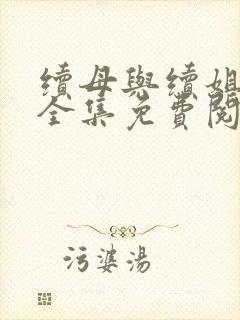 續母與續姐
全集免費閱
污婆湯